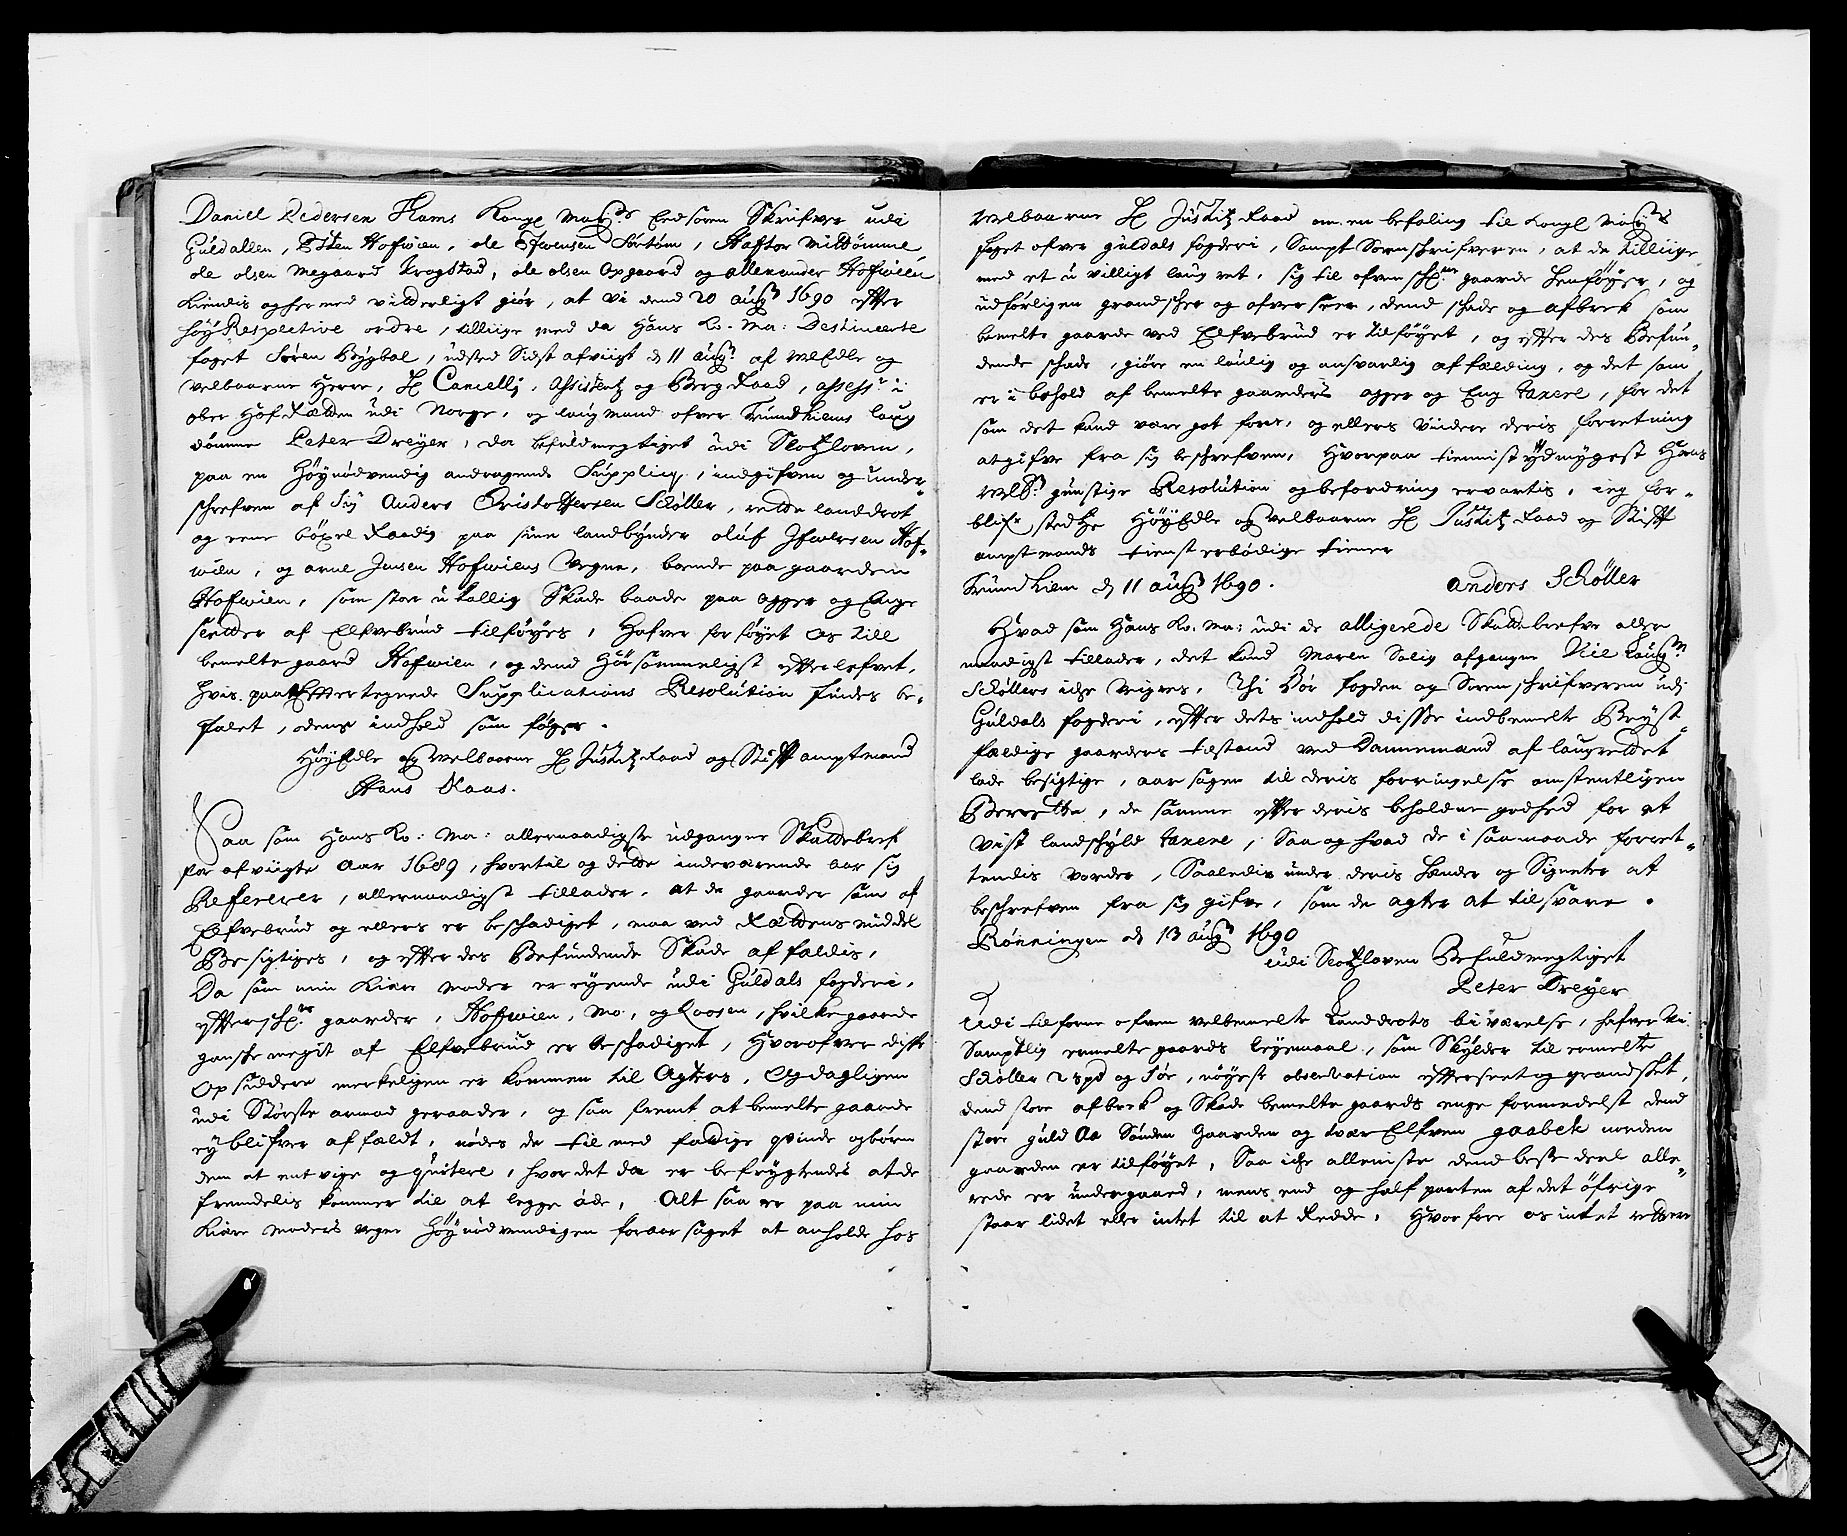 Daniell Pedersen Hams Kongl Maÿts Eedsoren Skrifver udi
Guldallen, Østen Hofwien, ole Ifwersen Sørtøm, Haftor Midtømme
ole olsen Megaard Krogstad, ole olsen Opgaard og allexander Hofwien
Kiendis og hermed vitterligt giør, at vi dend 20 augs 1690 efter
høÿ Respective ordre, tillige med da Hans Ko. Ma: Destineerte
foget Søren Bÿgbal, udsted Sidst afvigt d 11 augs af WelEdle og
velbaarne Herre, H Cancellj, Assistentz og Berg Raad, assessr i
ober Hof Retten udi Norge, og laugmand ofver Trundhiems laug
dømme Peter Dreÿer, da befuldmegtiget udi Slotzloven,
paa en Høÿnødvendig andragende Suppliq, indgifven og under„
schrefven af Sr Anders Cristoffersen Schøller, rette landdrot
og eene bÿxel Raadig paa sine landbÿnder oluf Ifwersen Hof„
wien, og arne Jensen Hofwiens Vegne, boende paa gaarden
Hofwien, som stor utallig Skade baade paa agger og Enge
sletter af Elfvebrud tilføÿes, Hafver forføÿet os till
bemelte gaard Hofwien, og dend Hørsommeligst efterlefvet,
hvis paa Eftertegnede Supplications Resolution findes be„
falet, odens indhold som følger.
HøÿEdle og Velbaarne H Justitz Raad og Stift amptmand
Hans Kaas.
Saa som Hans Ko: Ma: allernaadigste udgangne Skattebref
for afvigte Aar 1689, hvortil og dette indeværende aar sig
Refererer, allernaadigst tillader, at de gaarder som af
Elfvebrud og ellers er beschadiget, maa ved Rettens middel
Besigtiges, og efter des Befindende Skade affeldis,
Da som min Kiære Moder er eÿende udi Guldals fogderi,
efterschne gaarder, Hofwien, Mo, og Roosen, hvilke gaarde
ganske megit af Elfvebrud er beschadiget, Hvorofver disse
Opsiddere merkeligen er kommen til Agters, Og dagligen
udi Største armod geraader, og saa fremt at bemelte gaarde
eÿ blifver affeldt, nødes de til med fattige qvinde og børn
dem at entvige og qvitere, hvor det da er befrÿgtendes at de
fremdelis kommer til at legge øde, Alt saa er paa min
Kiære Moders vegne Høÿnødvendigen foraarsaget at anholde hos
Velbaarne H Justitz Raad om en befaling til Kongl Maÿts
foget ofver guldals fogderi, Sampt Sorenschrifveren, at de tillige
med et uvilligt laugret, sig til ofvenschne gaarde henføÿer, og
udførligen grandscher og ofverseer, dend schade og afbrek som
bemelte gaarde ved Elfvebrud er tilføÿet, og efter des Befin„
dende schade, giøre en laulig og ansvarlig affelding, og det som
er i behold af bemelte gaarders agger og Eng taxere, for det
som det kand være got fore, og ellers Videre deris forretning
at gifve fra sig beschrefven, Hvorpaa tiennist ÿdmÿgest Hans
WelBs gunstige Resolution og befordring ervartis, ieg for„
blifr stedtze HøÿEdle og velbaarne H Justitz Raad og Stift
amptmands tienst erbødige tiener
Trundhiem d 11 augs 1690. Anders Schøller
Hvad som Hans Ko: Ma: udi de alligerede Skattebrefve aller
naadigst tillader, det kand Maren Salig afgangne Nils Laugms
Schøllers icke veigres, Thi Bør fogden og Sorenschrifveren udi
Guldals fogderi, efter dets indhold disse indbemelte Brÿst„
feldige gaarders tilstand ved Dannemænd af laugrettet
lade besigtige, aarsagen til deris forringelse omstentligen
Berette, de samme efter deris beholdne godhed for et
vist landschÿld taxere, Saa og hvad de i saamaade forret„
tendis vorder, Saaledis under deris Hænder og Signeter at
beschrefven fra sig gifve, som de agter at tilsvare.
Rønningen d 13 augs 1690
udi Slotzloven Befuldmegtiget
Peter Dreÿer
Udi tilforne ofven velbemelte Landdrots bi værelse, hafver Vi
Samptlig ermelte gaards leÿemaal, som Skÿlder til ermelte
Schøller 2 spd og 1 ør, nøÿeste observation efterseet og grandsket,
dend store afbrek og Skade bemelte gaards enge formedelst dend
store guld Aa Sønden Gaarden og tver Elfven gaabek norden
gaarden er tilføÿet, Saa icke alleniste dend beste deel alle„
rede er undergaaed, mens end og half parten af det øfrige
staar lidet eller intet til at Redde, Hvorfore os intet rettere